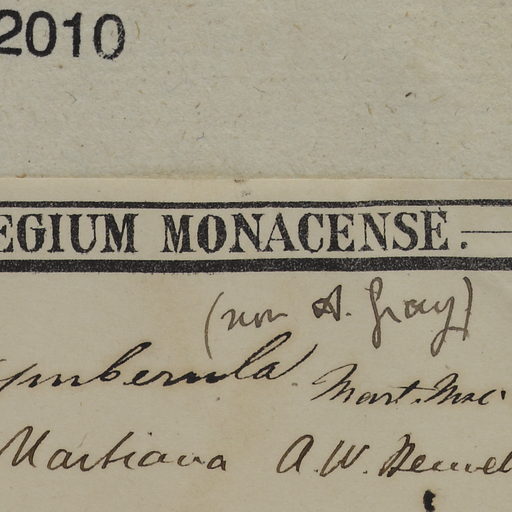 2010
EGIUM MONACENSE.
(non A. Gray)
ymbernula Mart. Msc.
Martiana A. W. Bennet